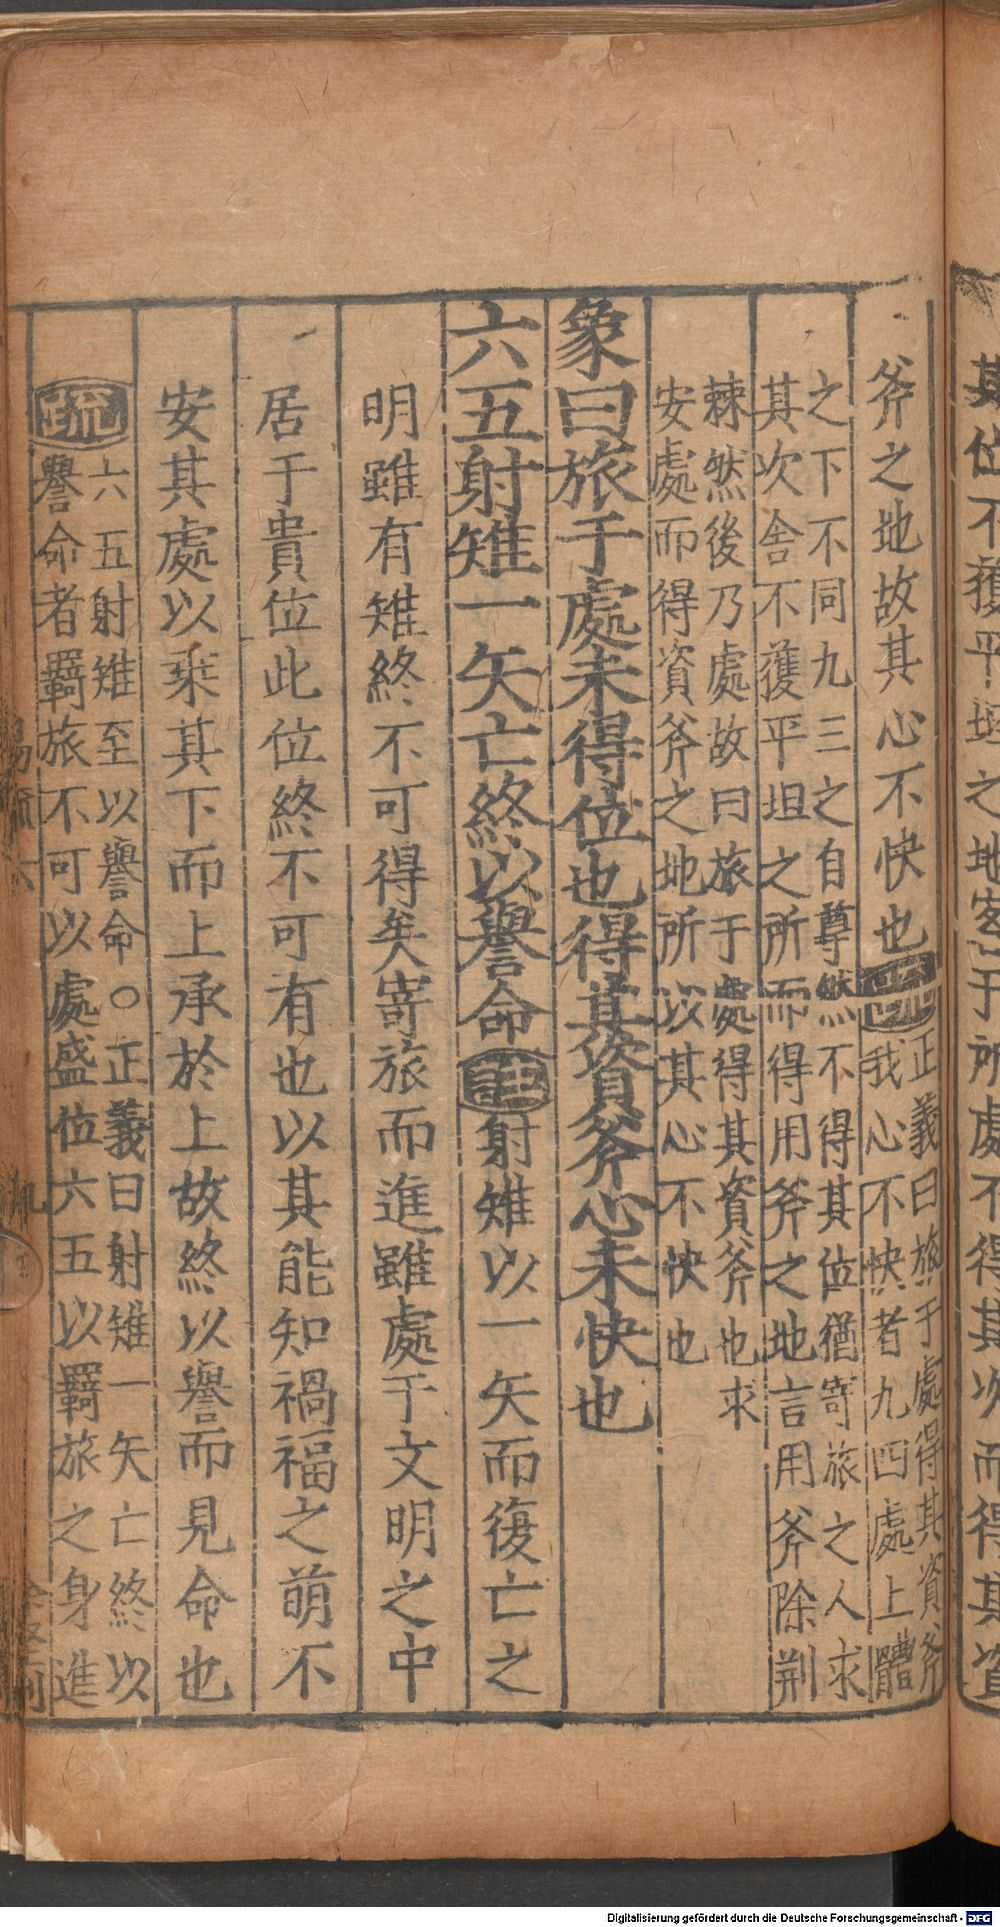 其位不獲平坦之地客于所處不得其次而得其資
斧之地故其心不快也疏正義曰旅于處得其資斧
我心不快者九四處上體
之下不同九三之自尊然不得其位猶寄旅之人求
其次舍不獲平坦之所而得用斧之地言用斧除荆
棘然後乃處故曰旅于處得其資斧也求
安處而得資斧之地所以其心不快也
象曰旅于處未得位也得其資斧心未快也
六五射雉一矢亡終以譽命註射雉以一矢而復亡之
明雖有雉終不可得矣寄旅而進雖處于文明之中
居于貴位此位終不可有也以其能知禍福之萌不
安其處以乘其下而上承於上故終以譽而見命也
疏六五射雉至以譽命○正義曰射雉一矢亡終以
譽命者羈旅不可以處盛位六五以羈旅之身進
易疏六 九
Digitalisierung gefördert durch die Deutsche Forschungsgemeinschaft - DFG